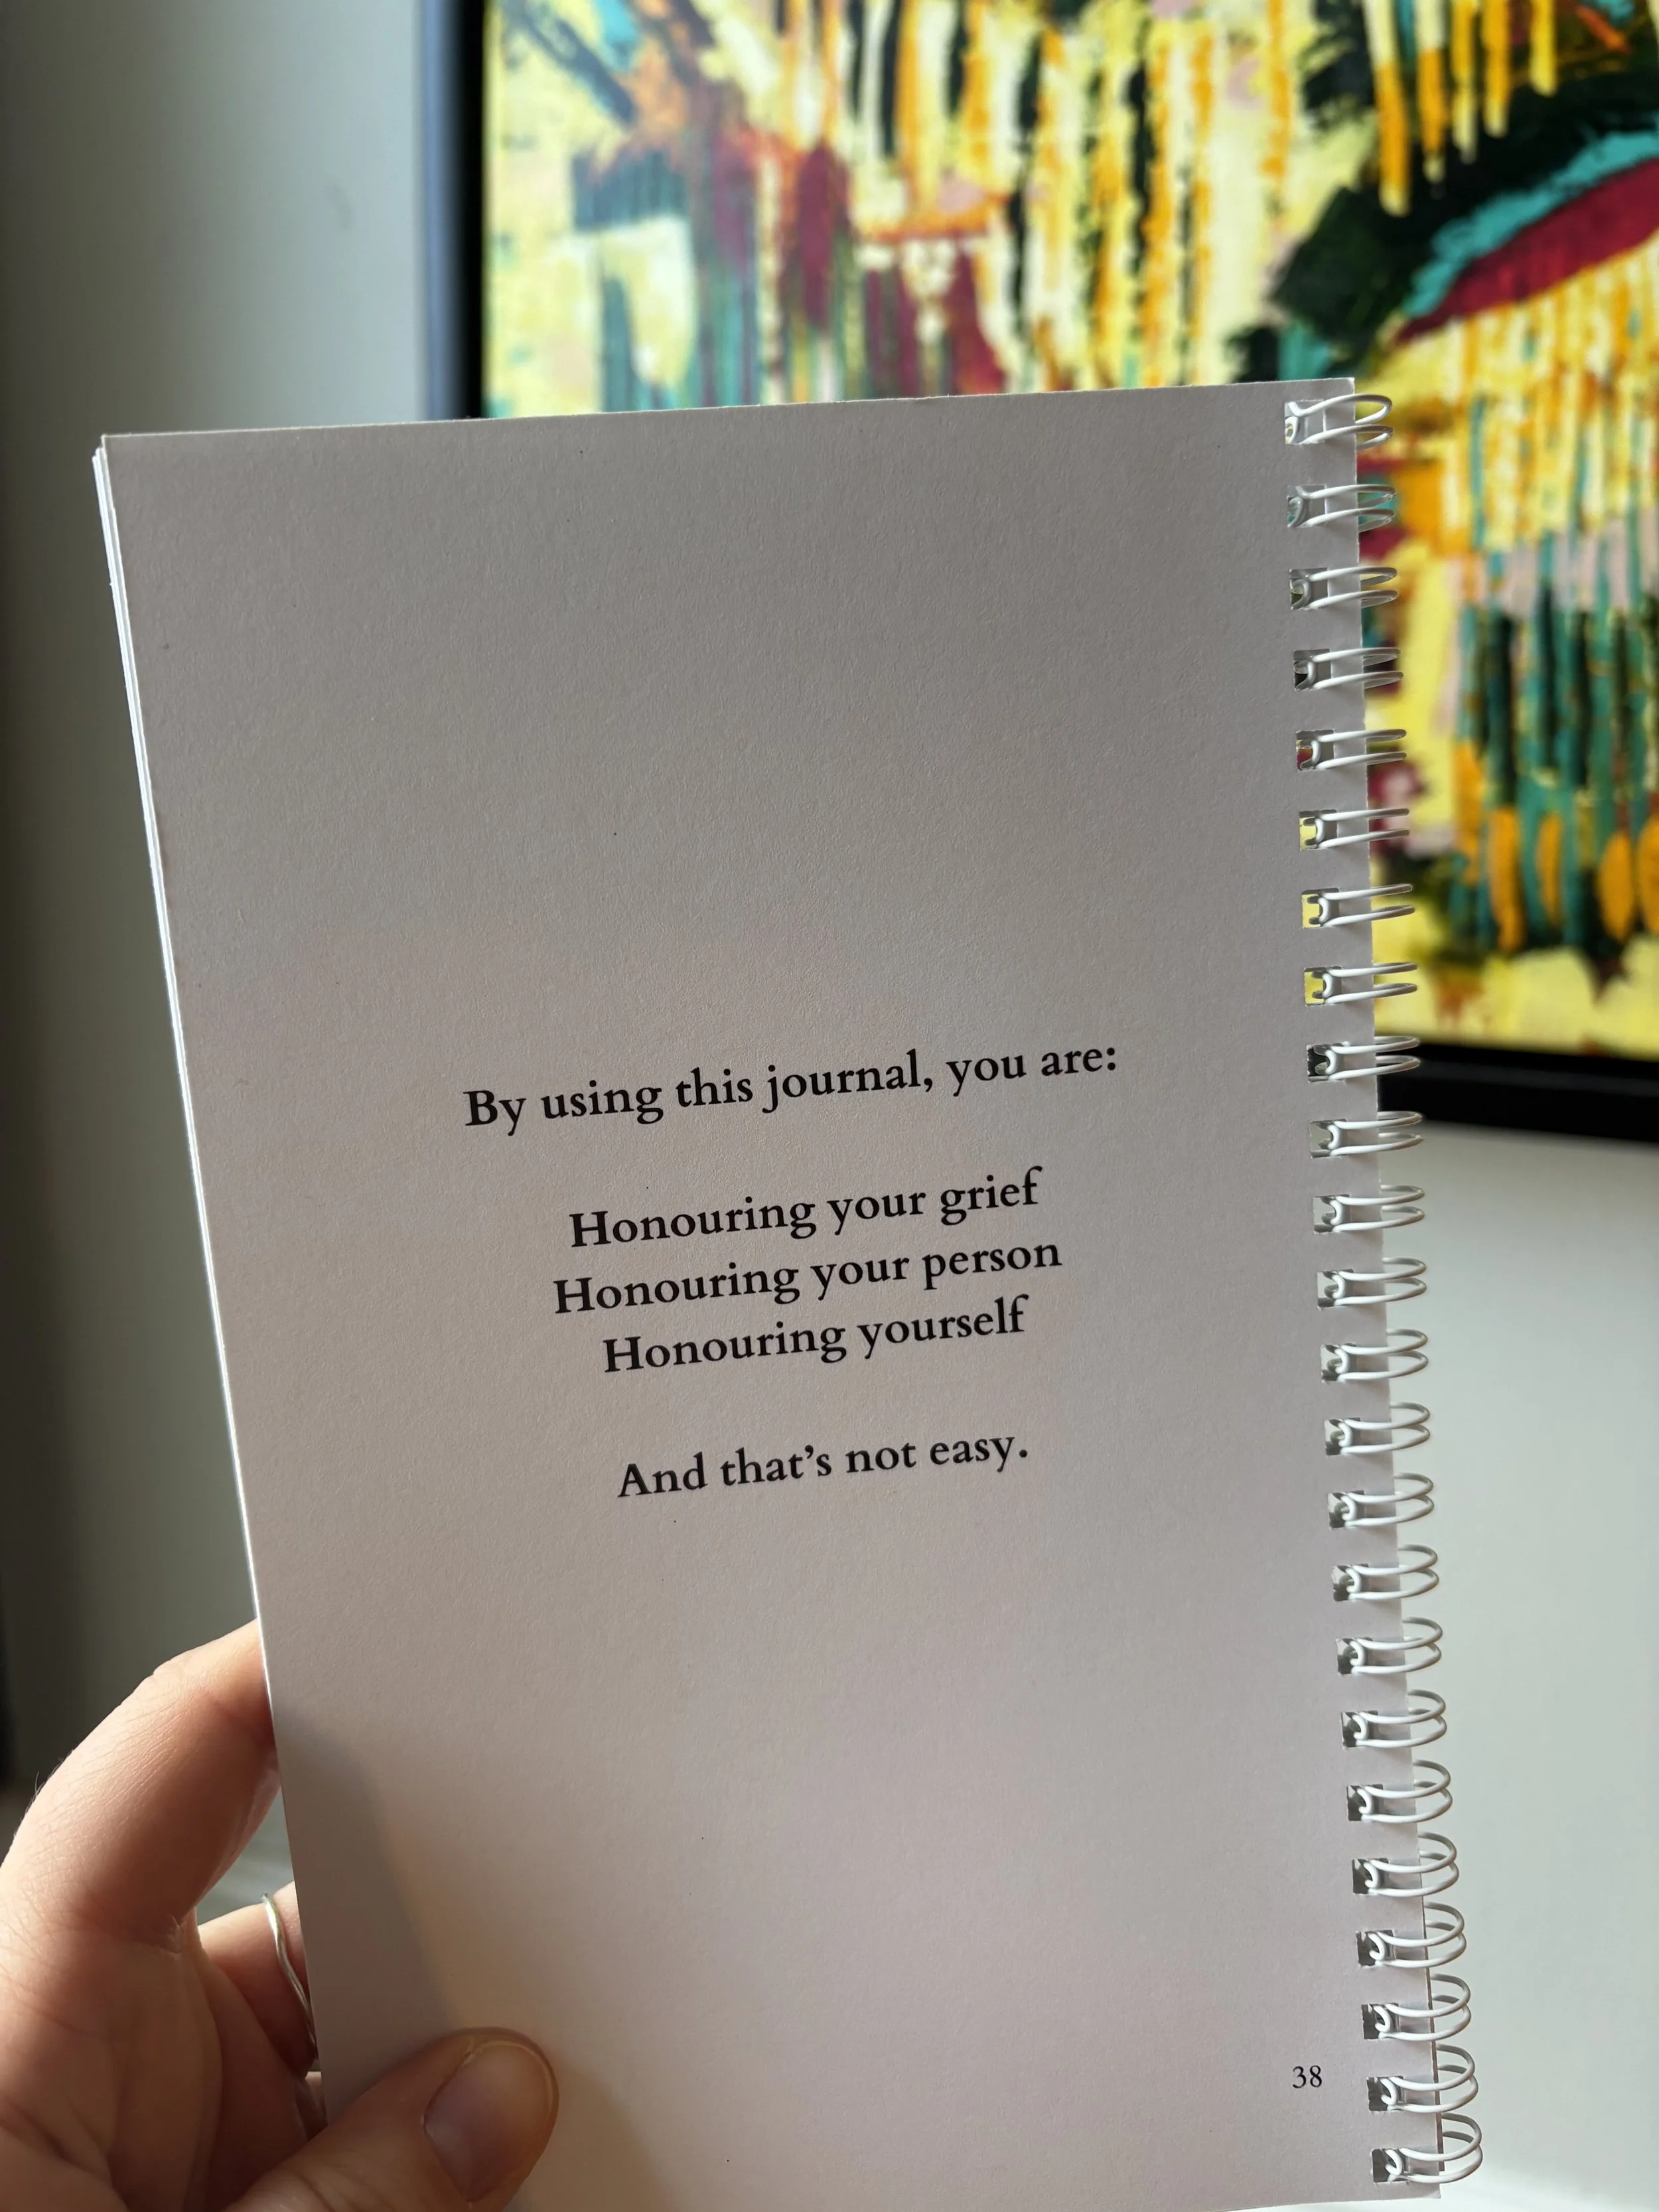 By using this journal, you are:
Honouring your grief
Honouring your person
Honouring yourself
And that’s not easy.
38